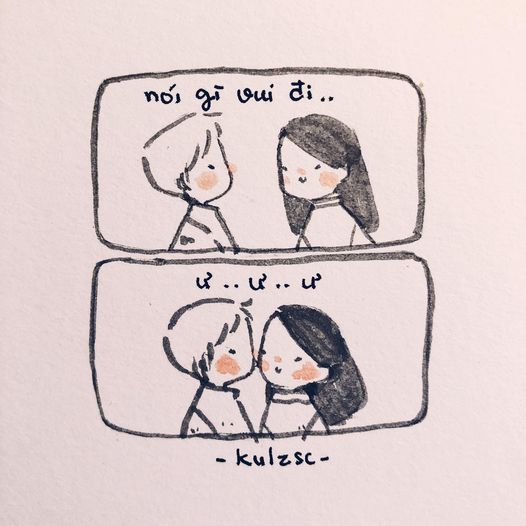 nói gì vui đi..
ư..ư..ư
-kulzsc-